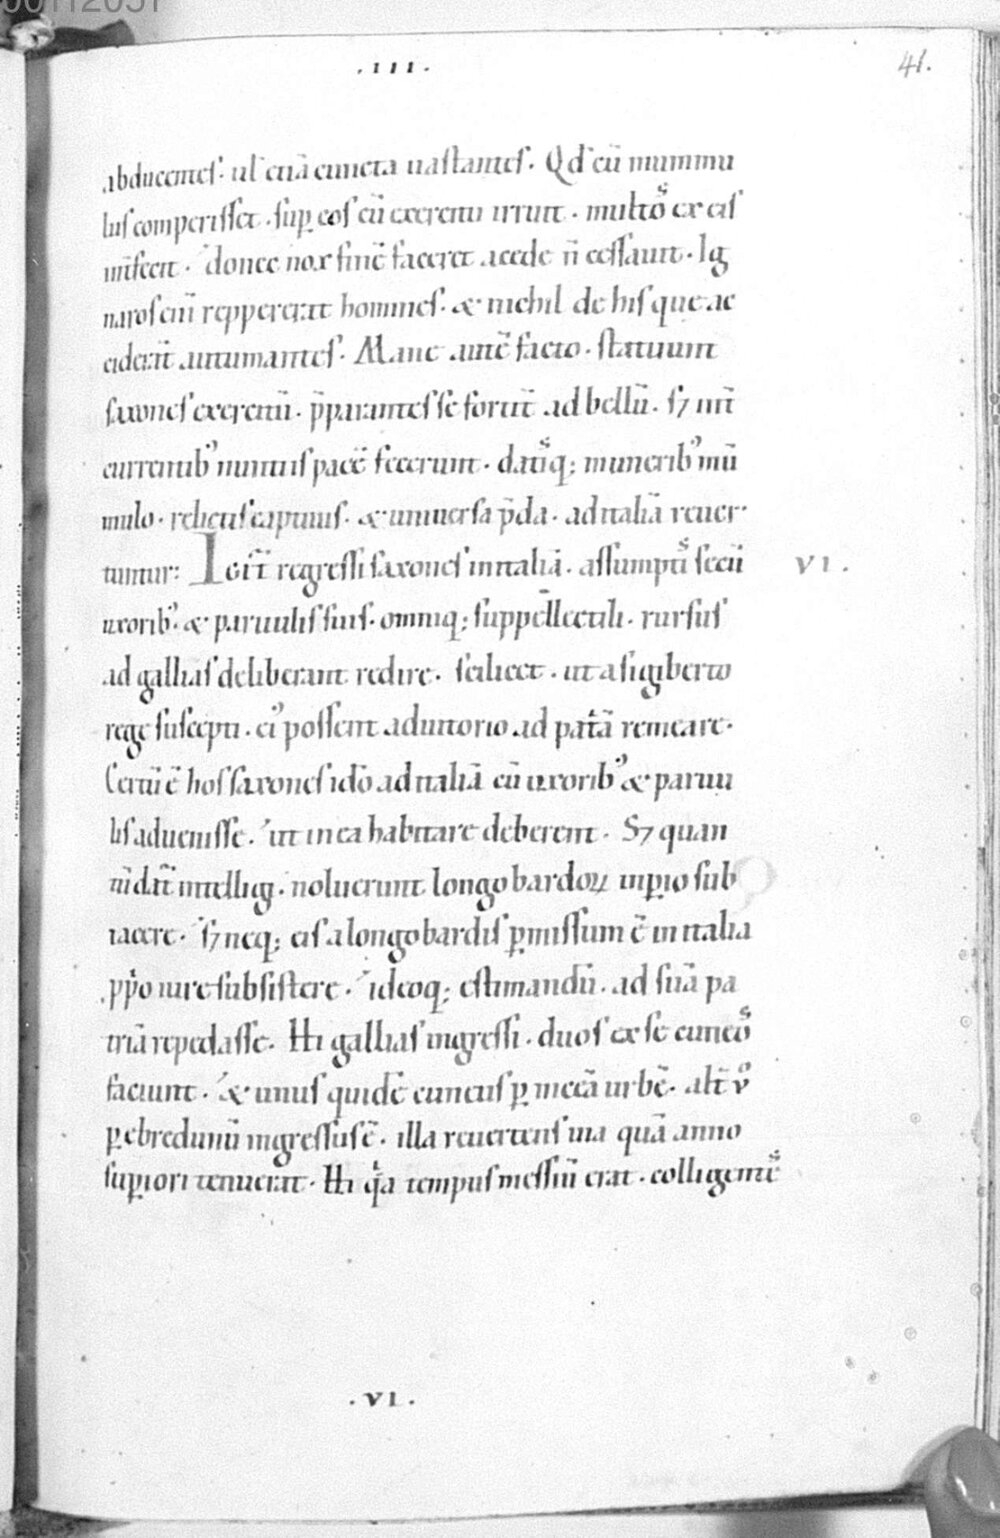 00112051
.III.
41.
abducentes. ul̄ etiā cuncta uastantes. Qd̄ cū mummu
lus comperisset. sup̱ eos cū exercitu irruit. multo᷒s ex eis
int̄fecit. donec nox finē faceret a cede n̄ cessauit. Ig
naros eni̅ reppererat homines. & nichil de his que ac
ciderat̄ autumantes. Mane autē facto. statuunt
saxones exercitū. p̄parantes se fortit̄ ad bellū. sꝫ int̄
currentib᾿ nuntiis pacē fecerunt. datisq; muneribꝰ mū
mulo. relictis captiuis. & uniuersa p̄da. ad italiā reuer
tuntur: Igit̄ regressi saxones in italiā. assumptis secū
uxorib᾿. & paruulis suis. omniq; suppellectili. rursus
ad gallias deliberant redire. scilicet. ut a sigiberto
rege suscepti. eiꝰ possent adiutorio ad pat̄ā remeare.
Certū ē hos saxones idō ad italiā cū uxoribꝰ & paruu
lis aduenisse. ut in ea habitare deberent. Sꝫ quan
tū dat̄ intellig. noluerunt longobardoꝝ imp̱io sub
iacere. sꝫ neq; eis a longobardis p̱missum ē in italia
pp̄o iure subsistere. ideoq; estimandū. ad suā pa
triā repedasse. Hi gallias ingressi. duos ex se cuneos
faciunt. & unus quidē cuneus p̱ niceā urbē. alt̄ v̊
p̱ ebredunū ingressus ē. illa reuertens uia quā anno
sup̱iori tenuerat. Hi qͥa tempus messiū erat. colligentes
VI.
.VI.